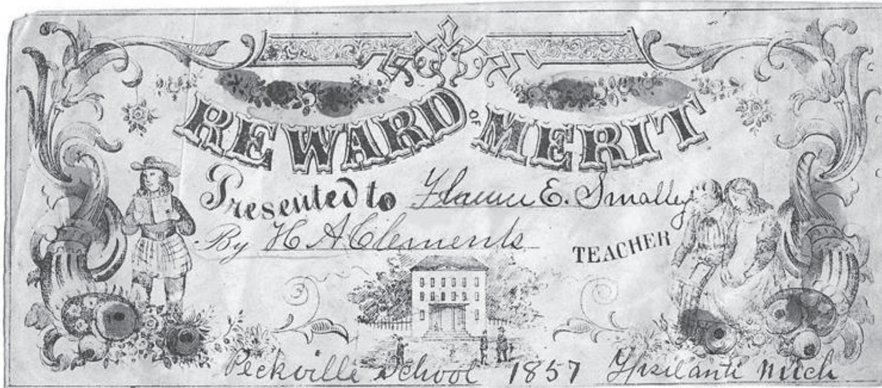 REWARD OF MERIT
Presented to E. Smalley
By H A Clements
TEACHER
Peckville School 1857 Ypsilanti Mich